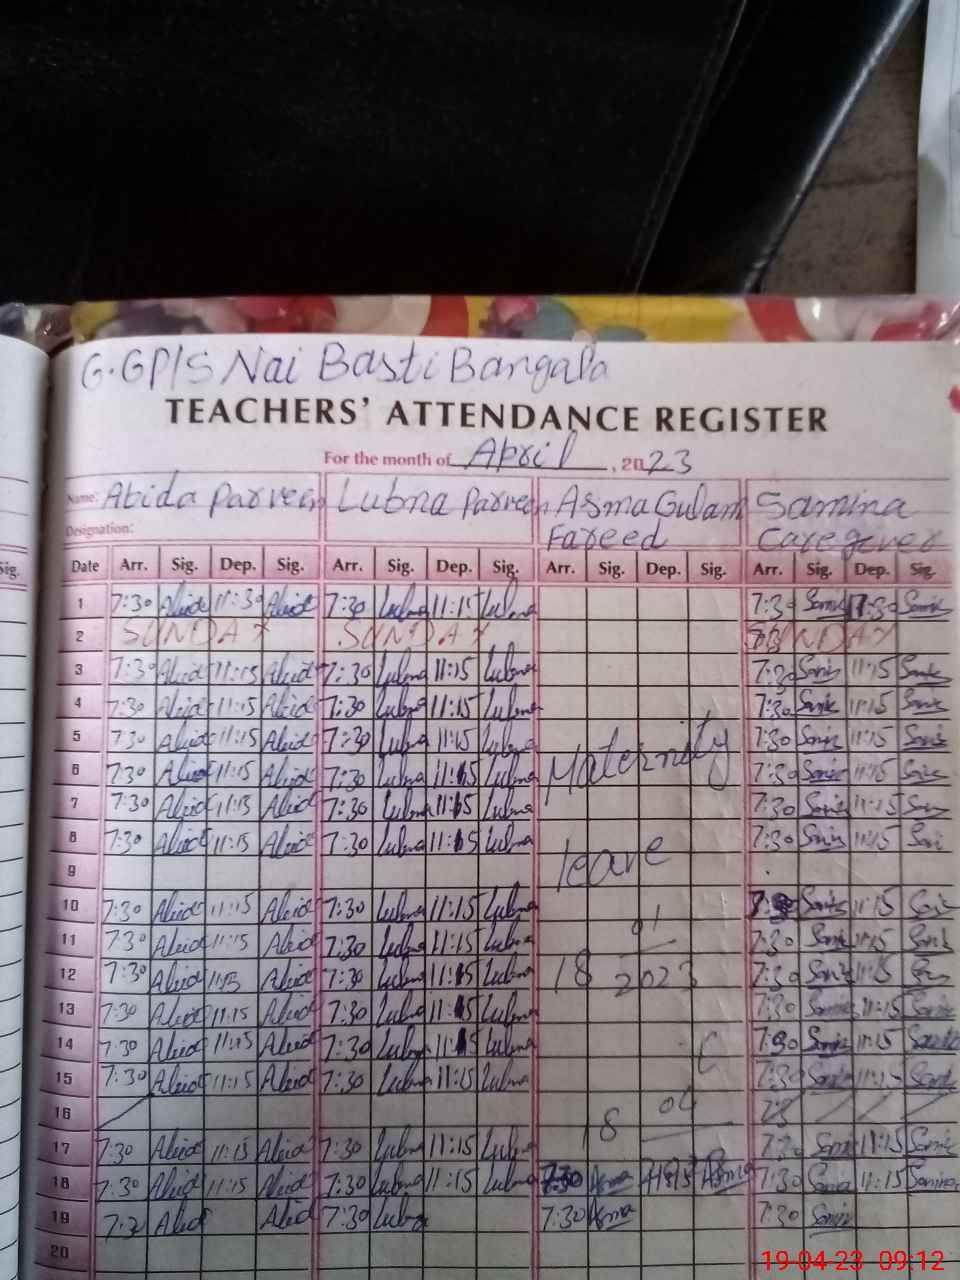 G.GP/S Nai Basti Bangala
TEACHERS' ATTENDANCE REGISTER
For the month of April, 2023
Name: Abida Parveen Lubna Parveen Asma Gulam Samina
Designation: Fareed Caregever
Sig. Date Arr. Sig. Dep. Sig. Arr. Sig. Dep. Sig. Arr. Sig. Dep. Sig. Arr. Sig. Dep. Sig.
1 7:30 Abid 11:30 Abid 7:30 Lubna 11:15 Lubna 7:30 Samin 7:30 Samin
2 SUNDAY SUNDAY SUNDAY
3 7:30 Abid 11:15 Abid 7:30 Lubna 11:15 Lubna 7:30 Samin 11:15 Samin
4 7:30 Abid 11:15 Abid 7:30 Lubna 11:15 Lubna 7:30 Samin 11:15 Samin
5 7:30 Abid 11:15 Abid 7:30 Lubna 11:15 Lubna Maternity 7:30 Samin 11:15 Samin
6 7:30 Abid 11:15 Abid 7:30 Lubna 11:15 Lubna 7:30 Samin 11:15 Samin
7 7:30 Abid 11:15 Abid 7:30 Lubna 11:15 Lubna 7:30 Samin 11:15 Samin
8 7:30 Abid 11:15 Abid 7:30 Lubna 11:15 Lubna leave 7:30 Samin 11:15 Samin
9
10 7:30 Abid 11:15 Abid 7:30 Lubna 11:15 Lubna Samin 11:15 Samin
11 7:30 Abid 11:15 Abid 7:30 Lubna 11:15 Lubna 01 7:30 Samin 11:15 Samin
12 7:30 Abid 11:15 Abid 7:30 Lubna 11:15 Lubna 18 2023 7:30 Samin 11:15 Samin
13 7:30 Abid 11:15 Abid 7:30 Lubna 11:15 Lubna 7:30 Samin 11:15 Samin
14 7:30 Abid 11:15 Abid 7:30 Lubna 11:15 Lubna 7:30 Samin 11:15 Samin
15 7:30 Abid 11:15 Abid 7:30 Lubna 11:15 Lubna 7:30 Samin 11:15 Samin
16 18 04
17 7:30 Abid 11:15 Abid 7:30 Lubna 11:15 Lubna 7:30 Samin 11:15 Samin
18 7:30 Abid 11:15 Abid 7:30 Lubna 11:15 Lubna 7:30 Asma Asma 7:30 Samina 11:15 Samina
19 Abid Abid 7:30 Lubna 7:30 Asma 7:30 Samin
20
19-04-23 09:12